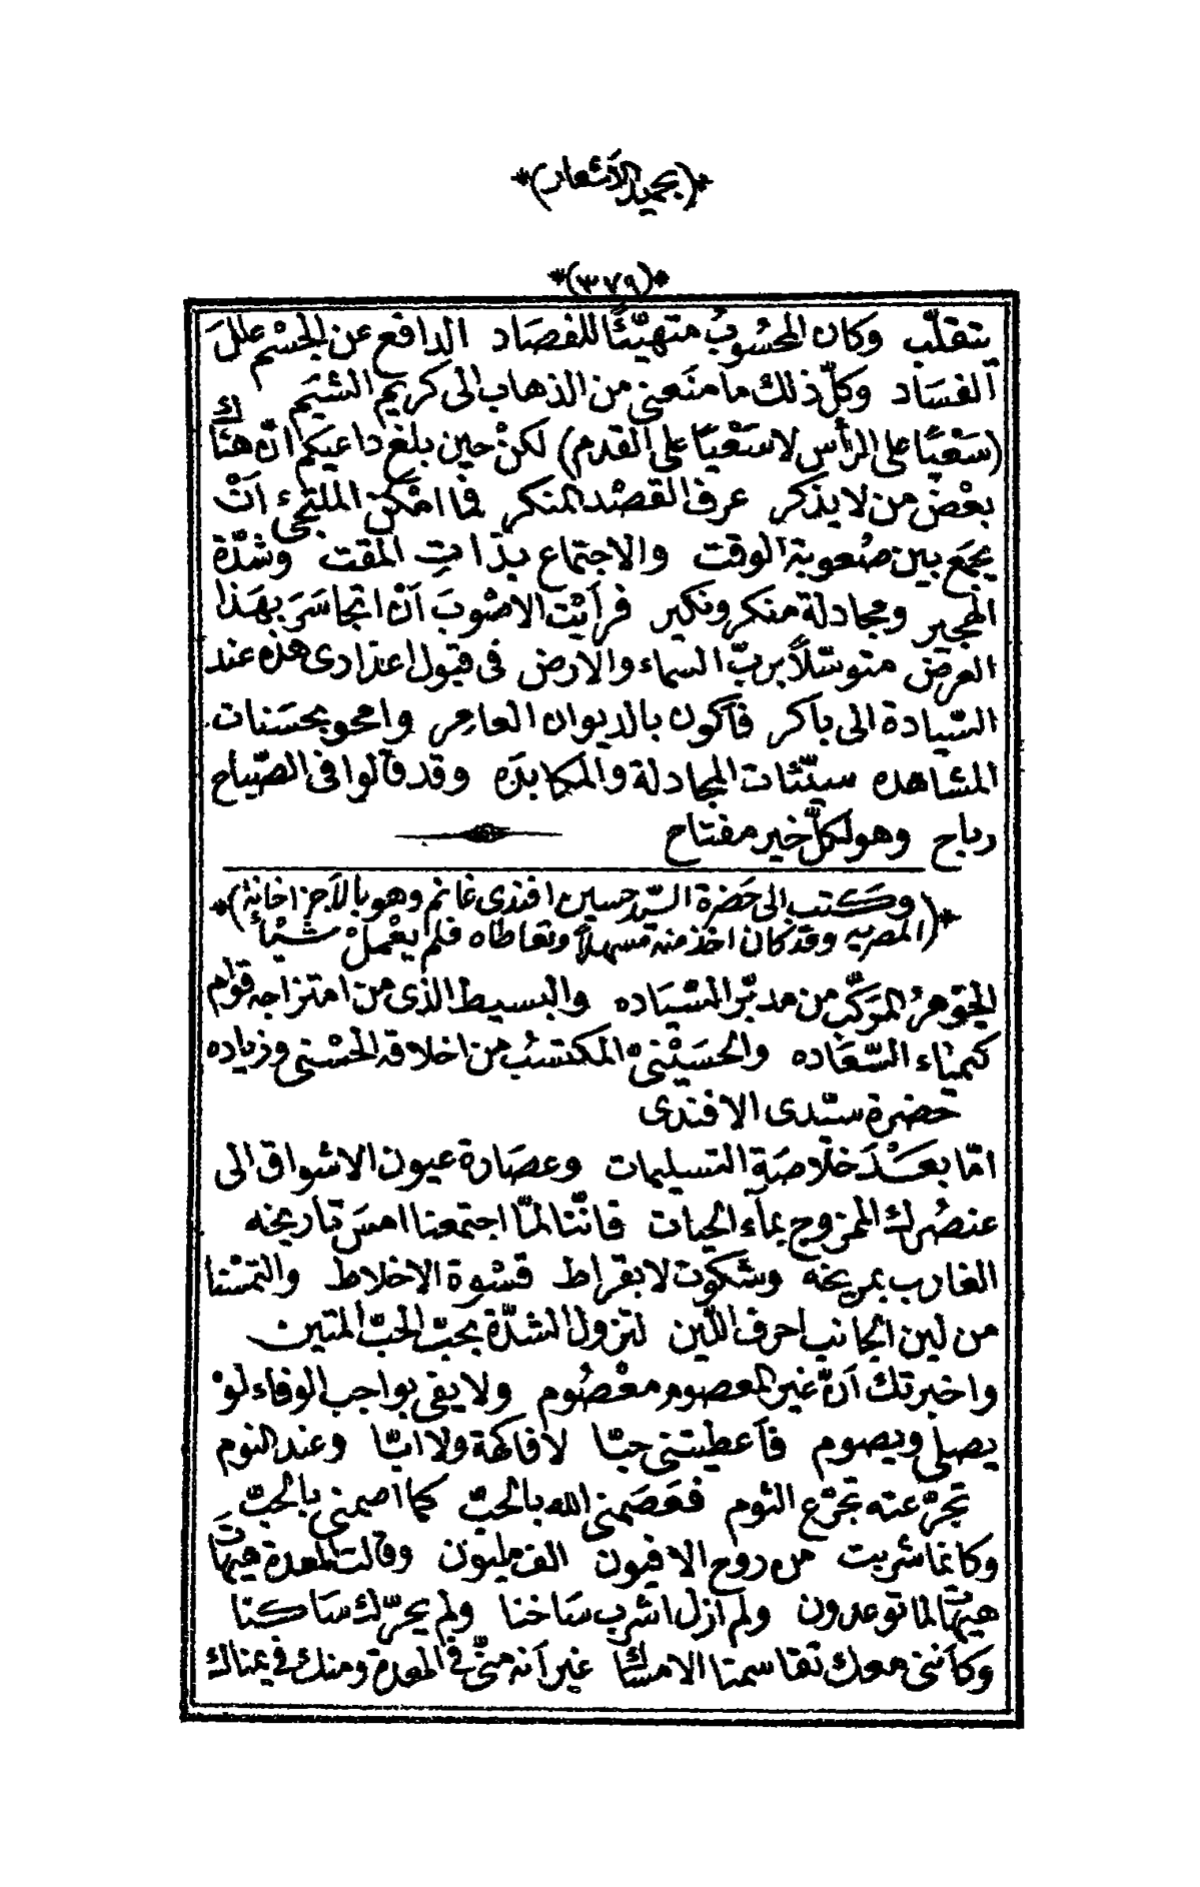 *(بحميد الأشعار)*
*(٣٧٩)*
يتقلّب وكان المحسُوبُ متهيّئًا للفصَاد الدافع عن الجسْم عللَ
الفسَاد وكلّ ذلك ما منَعنى من الذهاب الى كريم الشيَم
(سَعْيًا على الرأس لا سَعْيًا على القدم) لكنْ حين بلغ داعيكم انّ هنَاك
بعْض من لا يذكر عرف القصْد المنكر فما امْكن الملتجىء اَنْ
يجمَع بين صُعوبة الوقت والاجتماع بذات المقت وشدّة
الهجير ومجادلة منكر ونكير فرأيْت الاصْوبَ اَنْ اتجاسَرَ بهَذا
العرض متوسّلًا بربّ السماء والارض فى قبول اعتذارى هذه عند
السّيادة الى باَكر فاَكون بالديوان العامر وامحو بحسَنات
المشاهده سيّئات المجادلة والمكابدَه وقد قالوا فى الصّباح
رباح وهو لكلّ خير مفتاح
*(وكتب الى حَضرة السيّد حسين افندى غانم وهو بالاَجزاخانة
المصريه وقد كان اخذ منه مسهلًا وتعاطاه فلم يعْملْ شيْأ)*
الجَوهرُ المرَكّب من مدبّر السّيَاده والبسيط الذى من امتزاجه قوام
كيمياء السّعَاده والحسَيْنىّ المكتسَب من اخلاقه الحسْنى وزياده
حضرة سيّدى الافندى
امّا بعَدْ خلاصَة التسليمات وعصَارة عيون الاشواق الى
عنصُرك الممزوج بماَء الحيات فانّنا لمّا اجتمعنا امسَ تاريخه
الغارب بمريخه وشكوَت لابقراط قسْوة الاخلاط والتمسْنا
من لين الجانب احرف اللّين لتزول الشدّة بحَبّ الحبّ المتين
واخبرتك اَنّ غير المعصوم معْصُوم ولا يفى بواجب الوفاء لوْ
يصلى ويصوم فاَعطيتنى حبّا لا فاكهة ولا ابّا وعند النوم
تجرّعته تجرّع الثوم فعَصَمنى الله بالحَبّ كما اصيمنى بالحبّ
وكانما شربت من روح الافيون الف مليون وقالت المعدة هيهَات
هيهَات لما توعدون ولم ازل اشرب سَاخنا ولم يحرّك سَاكنا
وكاَننى معك تقاسمنا الامسَاك غير اَنه منّى فى المعدة ومنك فى يمناك